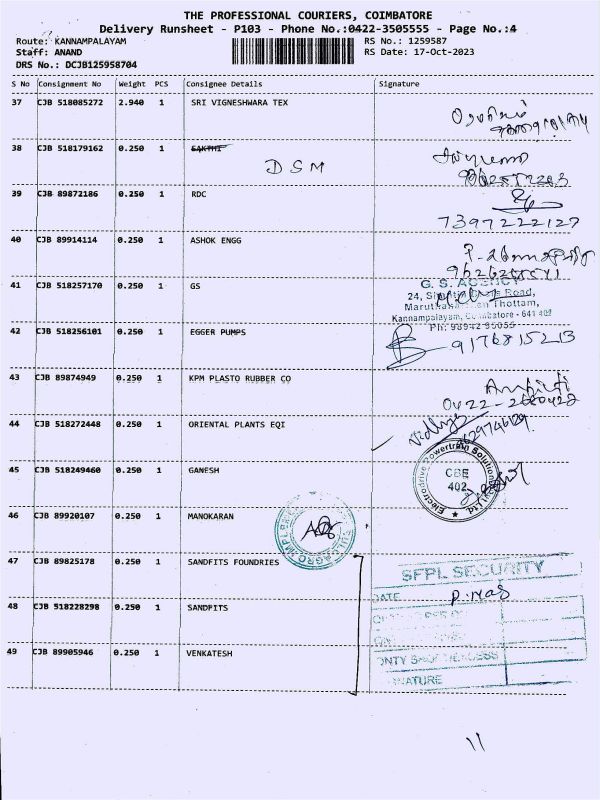 THE PROFESSIONAL COURIERS, COIMBATORE
Delivery Runsheet - P103 - Phone No.:0422-3505555 - Page No.:4
Route: KANNAMPALAYAM RS No.: 1259587
Staff: ANAND RS Date: 17-Oct-2023
DRS No.: DCJB125958704
S No Consignment No Weight PCS Consignee Details Signature
37 CJB 518085272 2.940 1 SRI VIGNESHWARA TEX
38 CJB 518179162 0.250 1 SAKTHI
DSM
39 CJB 89872186 0.250 1 RDC
7397222127
40 CJB 89914114 0.250 1 ASHOK ENGG
41 CJB 518257170 0.250 1 GS
G. S. AGENCY
24, Road,
Thottam,
Kannampalayam, Coimbatore - 641 402
Ph: 98942 95055
42 CJB 518256101 0.250 1 EGGER PUMPS
9176815213
43 CJB 89874949 0.250 1 KPM PLASTO RUBBER CO
44 CJB 518272448 0.250 1 ORIENTAL PLANTS EQI
45 CJB 518249460 0.250 1 GANESH
Electrodrive Powertrain Solutions Ltd.
CBE
402
46 CJB 89920107 0.250 1 MANOKARAN
47 CJB 89825178 0.250 1 SANDFITS FOUNDRIES
SFPL SECURITY
DATE
48 CJB 518228298 0.250 1 SANDFITS
49 CJB 89905946 0.250 1 VENKATESH
11